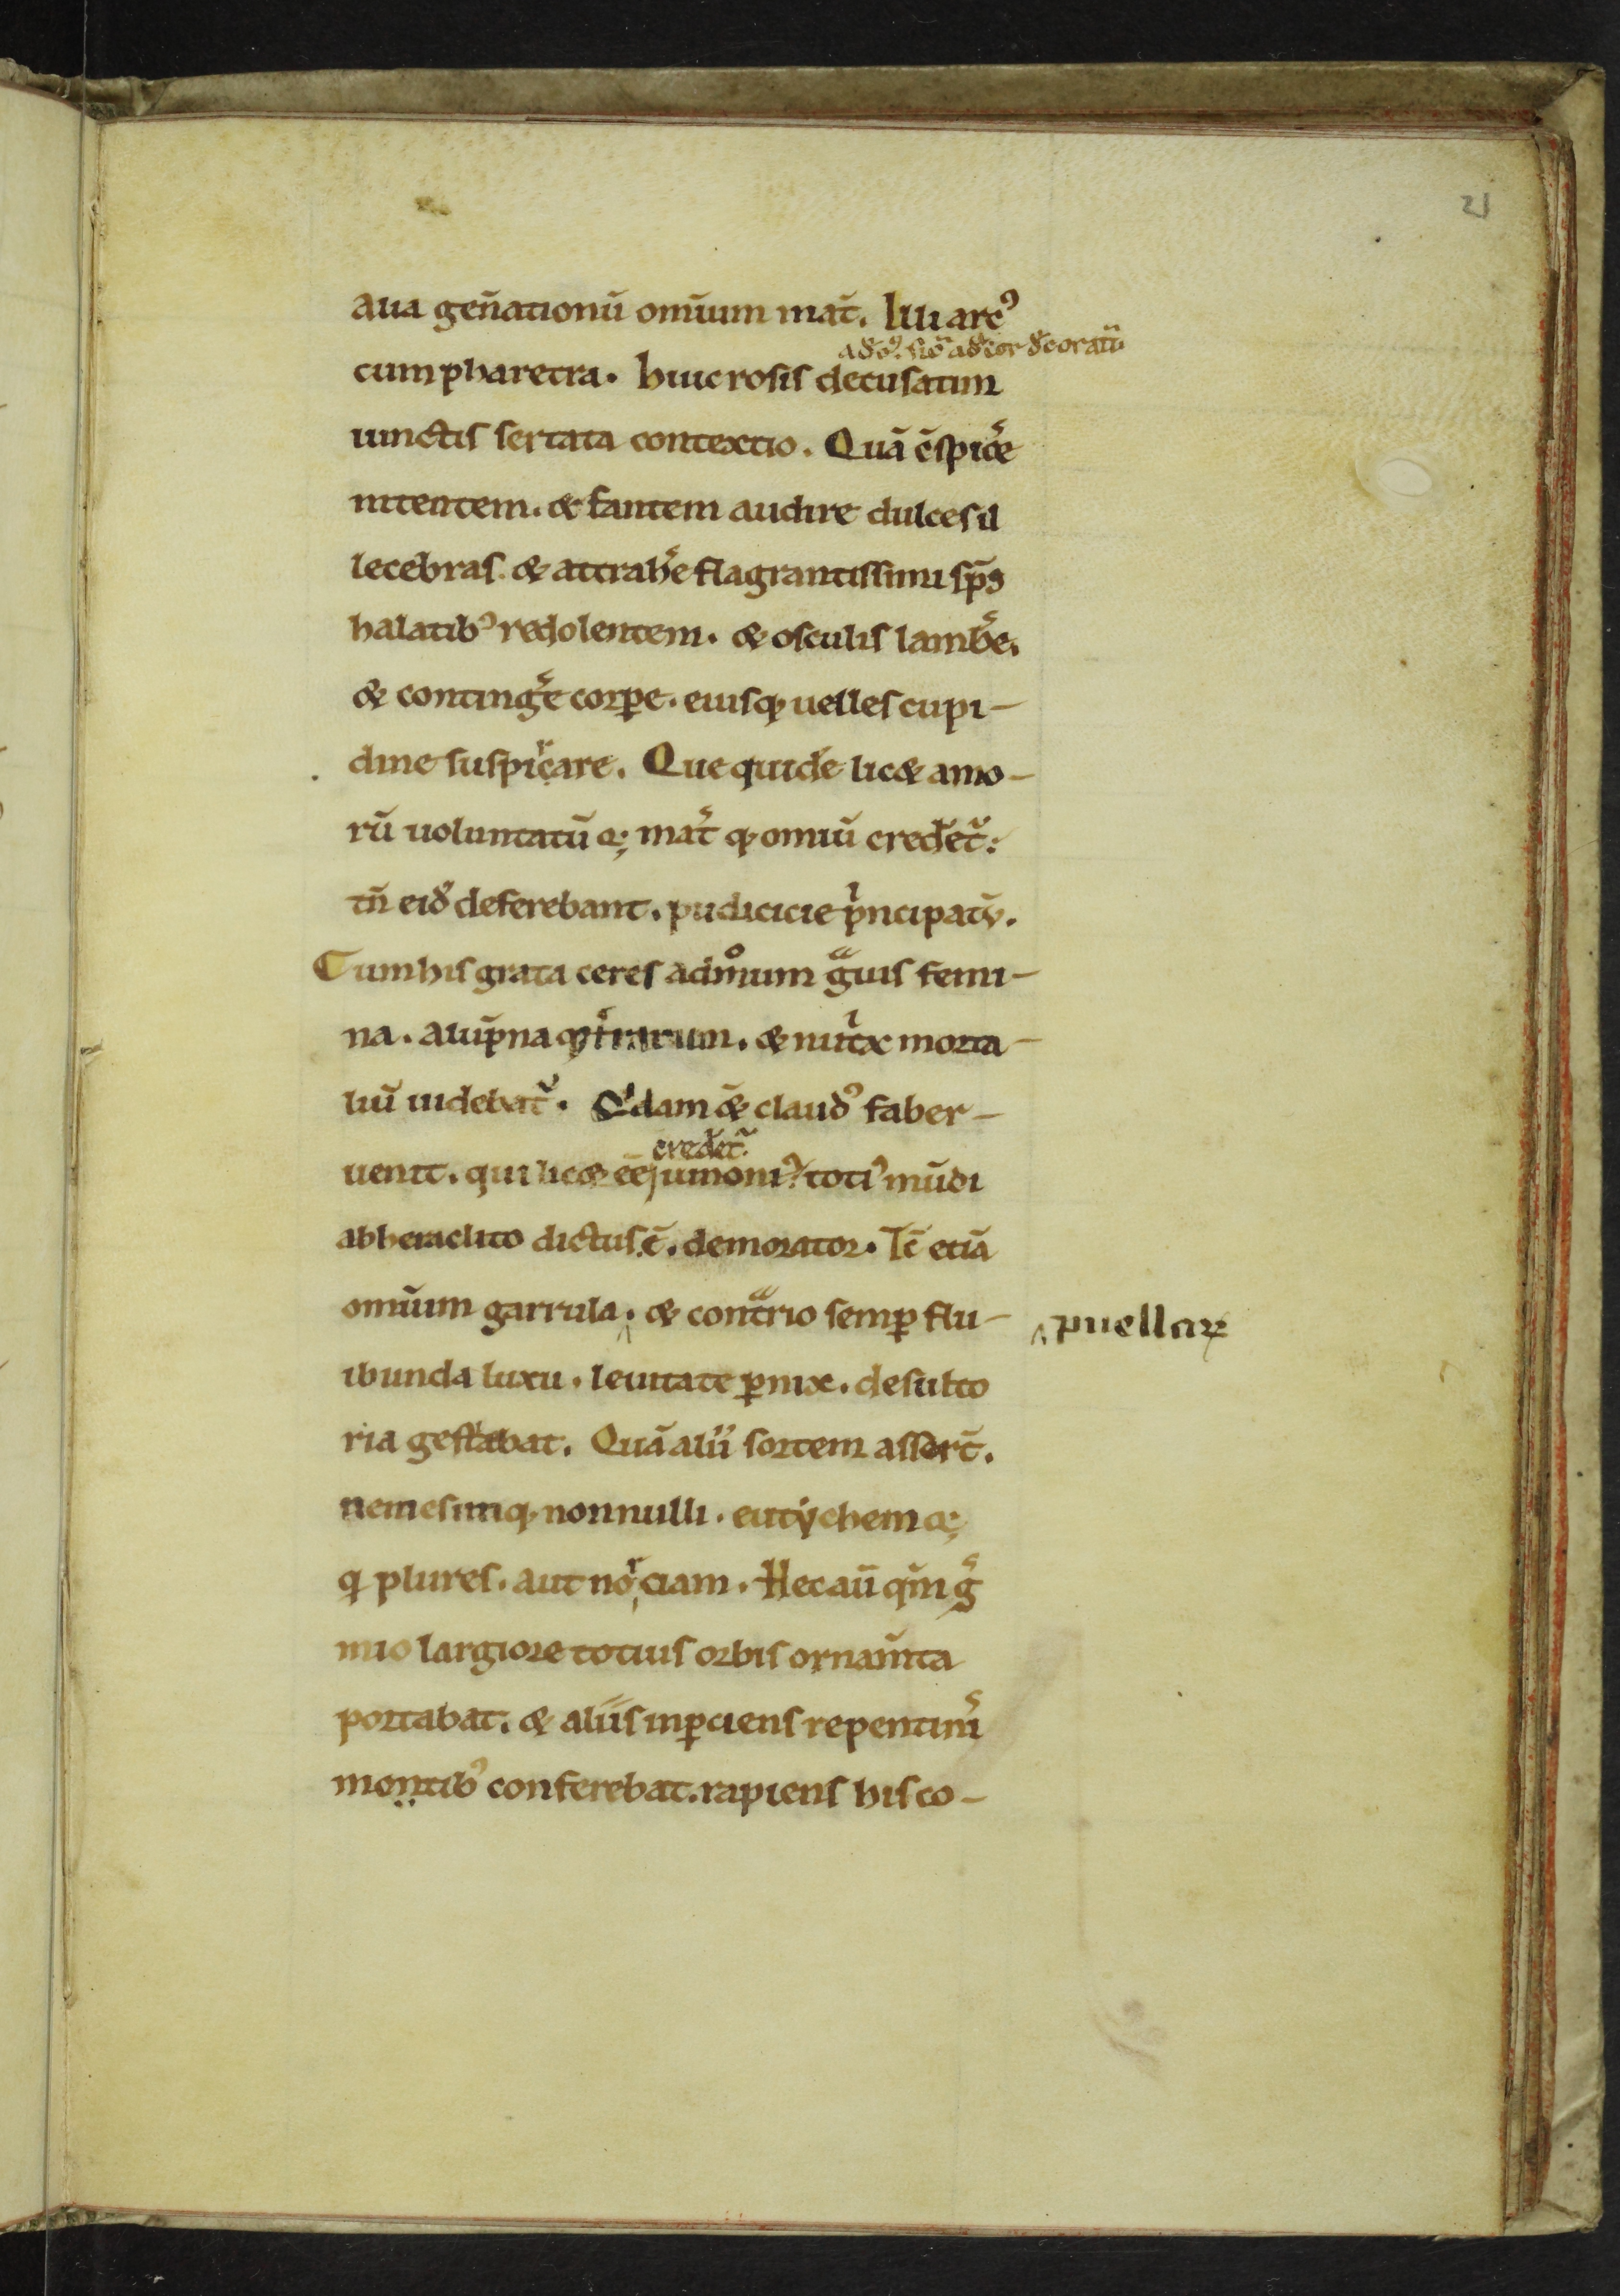 21
aua gen̄ationū omīum mat̄. Illi arc⁹
adō. siō adeor decoratū
cum pharetra. huic rosis decusatim
iunctis sertata contextio. Quā c̄spic̄e
nitentem. & fantem audire dulces il
lecebras. & attrah̄e flagrantissimi sp̄s
halatib⁹ redolentem. & osculis lamb̄e.
& continḡe corꝑe. eiusq; uelles cupi-
dine suspirare. Que quidē lic& amo-
rū uoluntatū q; mat̄ q; omiū credet̄:
tn̄ eid̄ deferebant. pudicicie pⁱncipatū.
Cum his grata ceres admᵒum gᵃuis femi-
na. alūpna q; t̄rarum. & nutⁱx morta-
liū uidebat̄. Qⁱdam &̄ claud⁹ faber-
credet̄
uenit. qui lic& ēē iumoni⁹. toti⁹ mūdi
ab heraclito dictus ē. demorator. Tc̄ etiā
omīum garrula. & contᵃrio semꝑ flu-
puellaꝝ
ibunda luxu. leuitate ꝑnix. desulto
ria gestabat. Quā alii sortem asser̄t.
nemesimq; nonnulli. eutychem q;
q plures. aut norciam. Hec aū qm̄ ḡ
mio largiore totius orbis ornam̄ta
portabat. & aliis inꝑciens repentini
montib⁹ conferebat. rapiens his co-